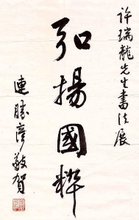 許瑞龍先生書法展
弘揚國粹
連勝彥敬賀